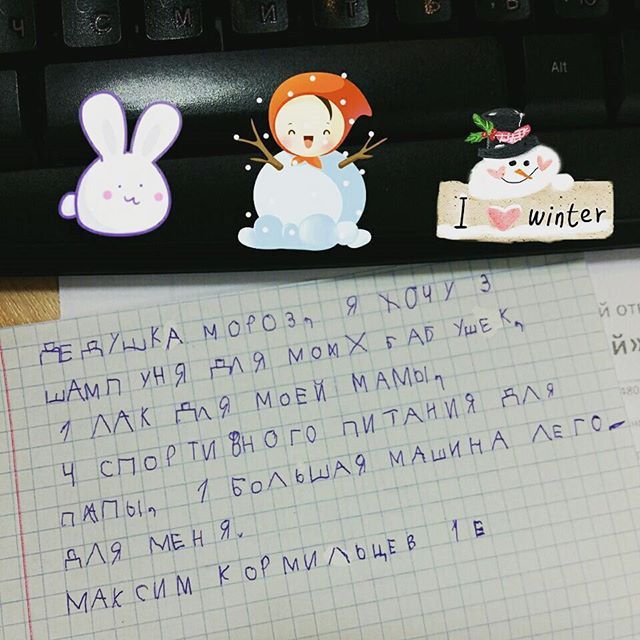 Ч С М И Т Ь Б Ю
Alt
I winter
ДЕДУШКА МОРОЗ, Я ХОЧУ 3
ШАМПУНЯ ДЛЯ МОИХ БАБУШЕК,
1 ЛАК ДЛЯ МОЕЙ МАМЫ,
4 СПОРТИВНОГО ПИТАНИЯ ДЛЯ
ПАПЫ, 1 БОЛЬШАЯ МАШИНА ЛЕГО-
ДЛЯ МЕНЯ.
МАКСИМ КОРМИЛЬЦЕВ 1Е